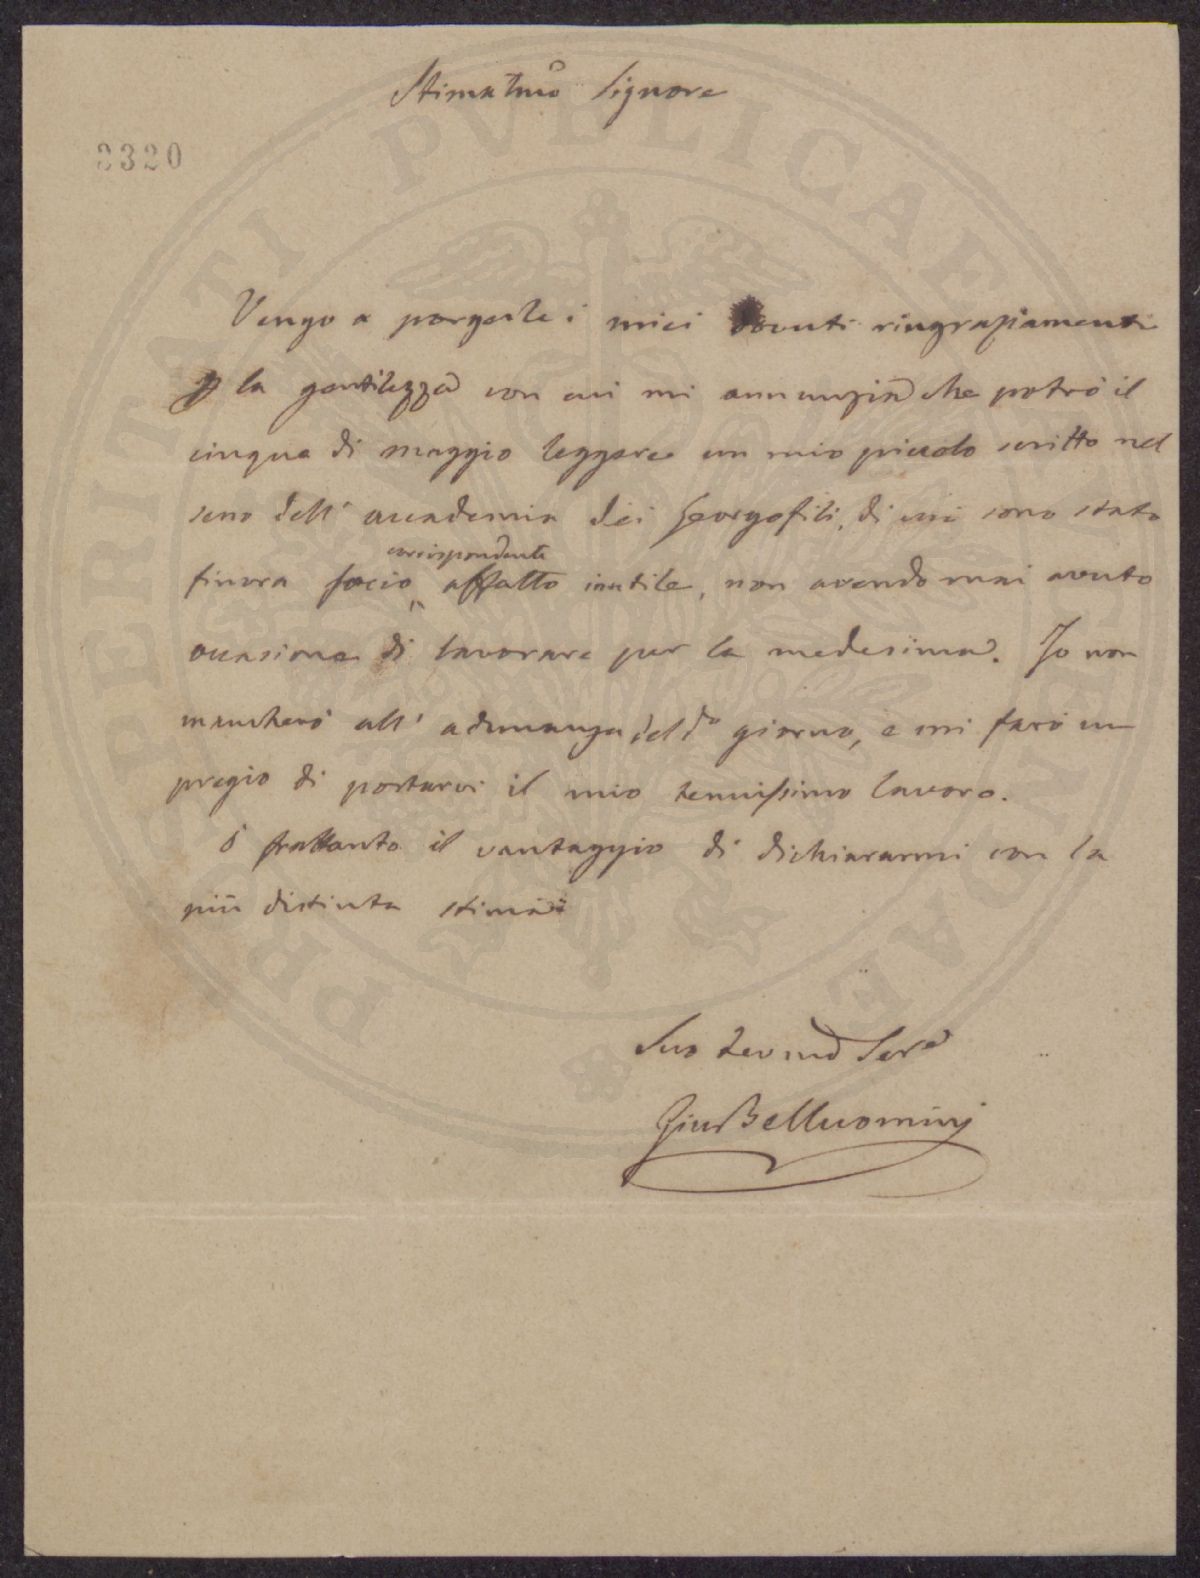 Stimatmo Signore
3320
Vengo a porgerle i miei dovuti ringraziamenti
p la gentilezza con cui mi annunzia che potrò il
cinque di maggio leggere un mio piccolo scritto nel
seno dell' accademia dei Georgofili, di cui sono stato
corrispondente
finora socio affatto inutile, non avendo mai avuto
occasione di lavorare per la medesima. Io non
mancherò all' adunanza del do giorno, e mi farò un
pregio di portarvi il mio tenuissimo lavoro.
Ò frattanto il vantaggio di dichiararmi con la
più distinta stima
Suo Devmo Sere
Giu Belluomini
PROSPERITATI PVBLICAE AVGENDAE